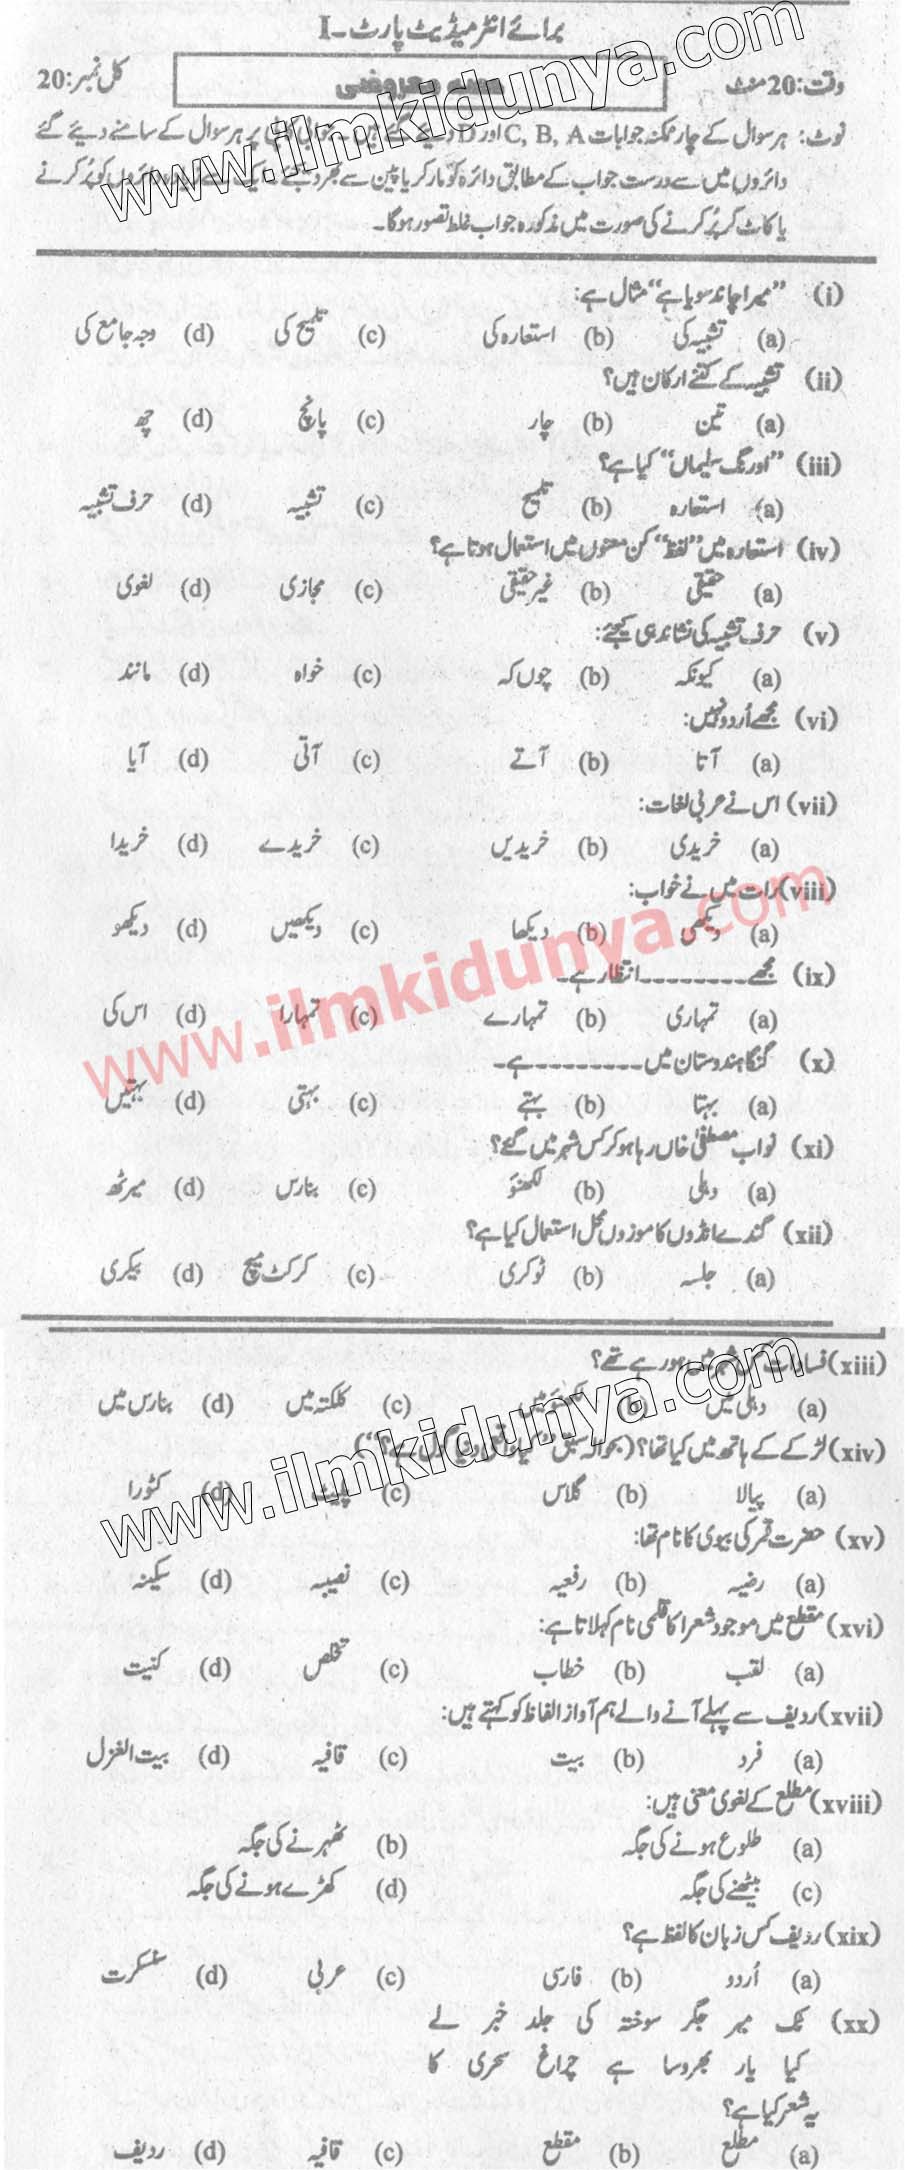 برائے انٹرمیڈیٹ پارٹ - I
وقت: 20 منٹ حصہ معروضی کل نمبر: 20
نوٹ: ہر سوال کے چار ممکنہ جوابات C, B, A اور D دیئے گئے ہیں۔ جوابی کاپی پر ہر سوال کے سامنے دیئے گئے
دائروں میں سے درست جواب کے مطابق دائرہ کو مارکر یا پین سے بھر دیجئے۔ ایک سے زیادہ دائروں کو پُر کرنے
یا کاٹ کر پُر کرنے کی صورت میں مذکورہ جواب غلط تصور ہوگا۔
www.ilmkidunya.com
(i) ”میرا چاند سویا ہے“ مثال ہے:
(a) تشبیہ کی (b) استعارہ کی (c) تلمیح کی (d) وجہ جامع کی
(ii) تشبیہ کے کتنے ارکان ہیں؟
(a) تین (b) چار (c) پانچ (d) چھ
(iii) ”اورنگ سلیماں“ کیا ہے؟
(a) استعارہ (b) تلمیح (c) تشبیہ (d) حرف تشبیہ
(iv) استعارہ میں ”لفظ“ کن معنوں میں استعمال ہوتا ہے؟
(a) حقیقی (b) غیر حقیقی (c) مجازی (d) لغوی
(v) حرف تشبیہ کی نشاندہی کیجئے:
(a) کیونکہ (b) چوں کہ (c) خواہ (d) مانند
(vi) مجھے اُردو نہیں:
(a) آتا (b) آتے (c) آتی (d) آیا
(vii) اس نے عربی لغات:
(a) خریدی (b) خریدیں (c) خریدے (d) خریدا
(viii) رات میں نے خواب:
(a) دیکھی (b) دیکھا (c) دیکھیں (d) دیکھو
www.ilmkidunya.com
(ix) مجھے --------- انتظار ہے۔
(a) تمہاری (b) تمہارے (c) تمہارا (d) اس کی
(x) گنگا ہندوستان میں ---------- ہے۔
(a) بہتا (b) بہتے (c) بہتی (d) بہتیں
(xi) نواب مصطفیٰ خاں رہا ہو کر کس شہر میں گئے؟
(a) دہلی (b) لکھنؤ (c) بنارس (d) میرٹھ
(xii) گندے انڈوں کا موزوں محل استعمال کیا ہے؟
(a) جلسہ (b) ٹوکری (c) کرکٹ میچ (d) بیکری
(xiii) فسادات کس شہر میں ہو رہے تھے؟
(a) دہلی میں (b) لکھنؤ میں (c) کلکتہ میں (d) بنارس میں
(xiv) لڑکے کے ہاتھ میں کیا تھا؟ (بحوالہ سبق ”کیا واقعی دنیا گول ہے؟“)
(a) پیالا (b) گلاس (c) پلیٹ (d) کٹورا
www.ilmkidunya.com
(xv) حضرت قمر کی بیوی کا نام تھا:
(a) رضیہ (b) رفعیہ (c) نصیبہ (d) سکینہ
(xvi) مقطع میں موجود شعرا کا قلمی نام کہلاتا ہے:
(a) لقب (b) خطاب (c) تخلص (d) کنیت
(xvii) ردیف سے پہلے آنے والے ہم آواز الفاظ کو کہتے ہیں:
(a) فرد (b) بیت (c) قافیہ (d) بیت الغزل
(xviii) مطلع کے لغوی معنی ہیں:
(a) طلوع ہونے کی جگہ (b) ٹھہرنے کی جگہ
(c) بیٹھنے کی جگہ (d) کھڑے ہونے کی جگہ
(xix) ردیف کس زبان کا لفظ ہے؟
(a) اُردو (b) فارسی (c) عربی (d) سنسکرت
(xx) ٹک میر جگر سوختہ کی جلد خبر لے
کیا یار بھروسا ہے چراغِ سحری کا
یہ شعر کیا ہے؟
(a) مطلع (b) مقطع (c) قافیہ (d) ردیف